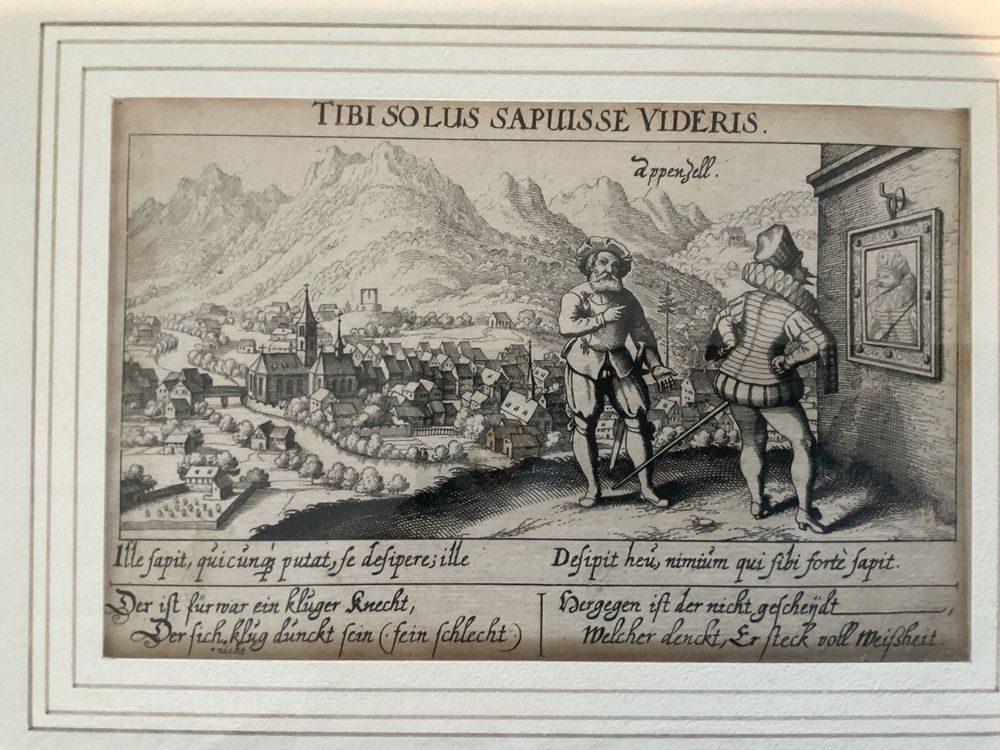 TIBI SOLUS SAPUISSE VIDERIS.
Appenzell.
Ille sapit, quicunq; putat, se desipere; ille
Desipit heu, nimium qui sibi fortè sapit.
Der ist fürwar ein kluger Knecht,
Der sich klug dunckt sein (fein schlecht)
*nicht
Hergegen ist der nicht gescheydt,
Welcher denckt, Er steck voll Weißheit.